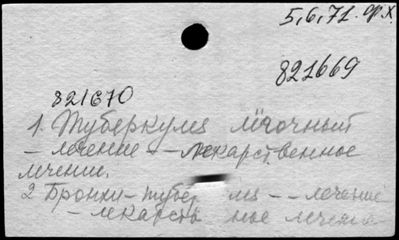 5,6,71. ф.х.
821669
821670
1. Туберкулез лёгочный
– лечение – – лекарственное
лечение.
2 Бронхи – туберкулез – – лечение
– лекарственное лечение